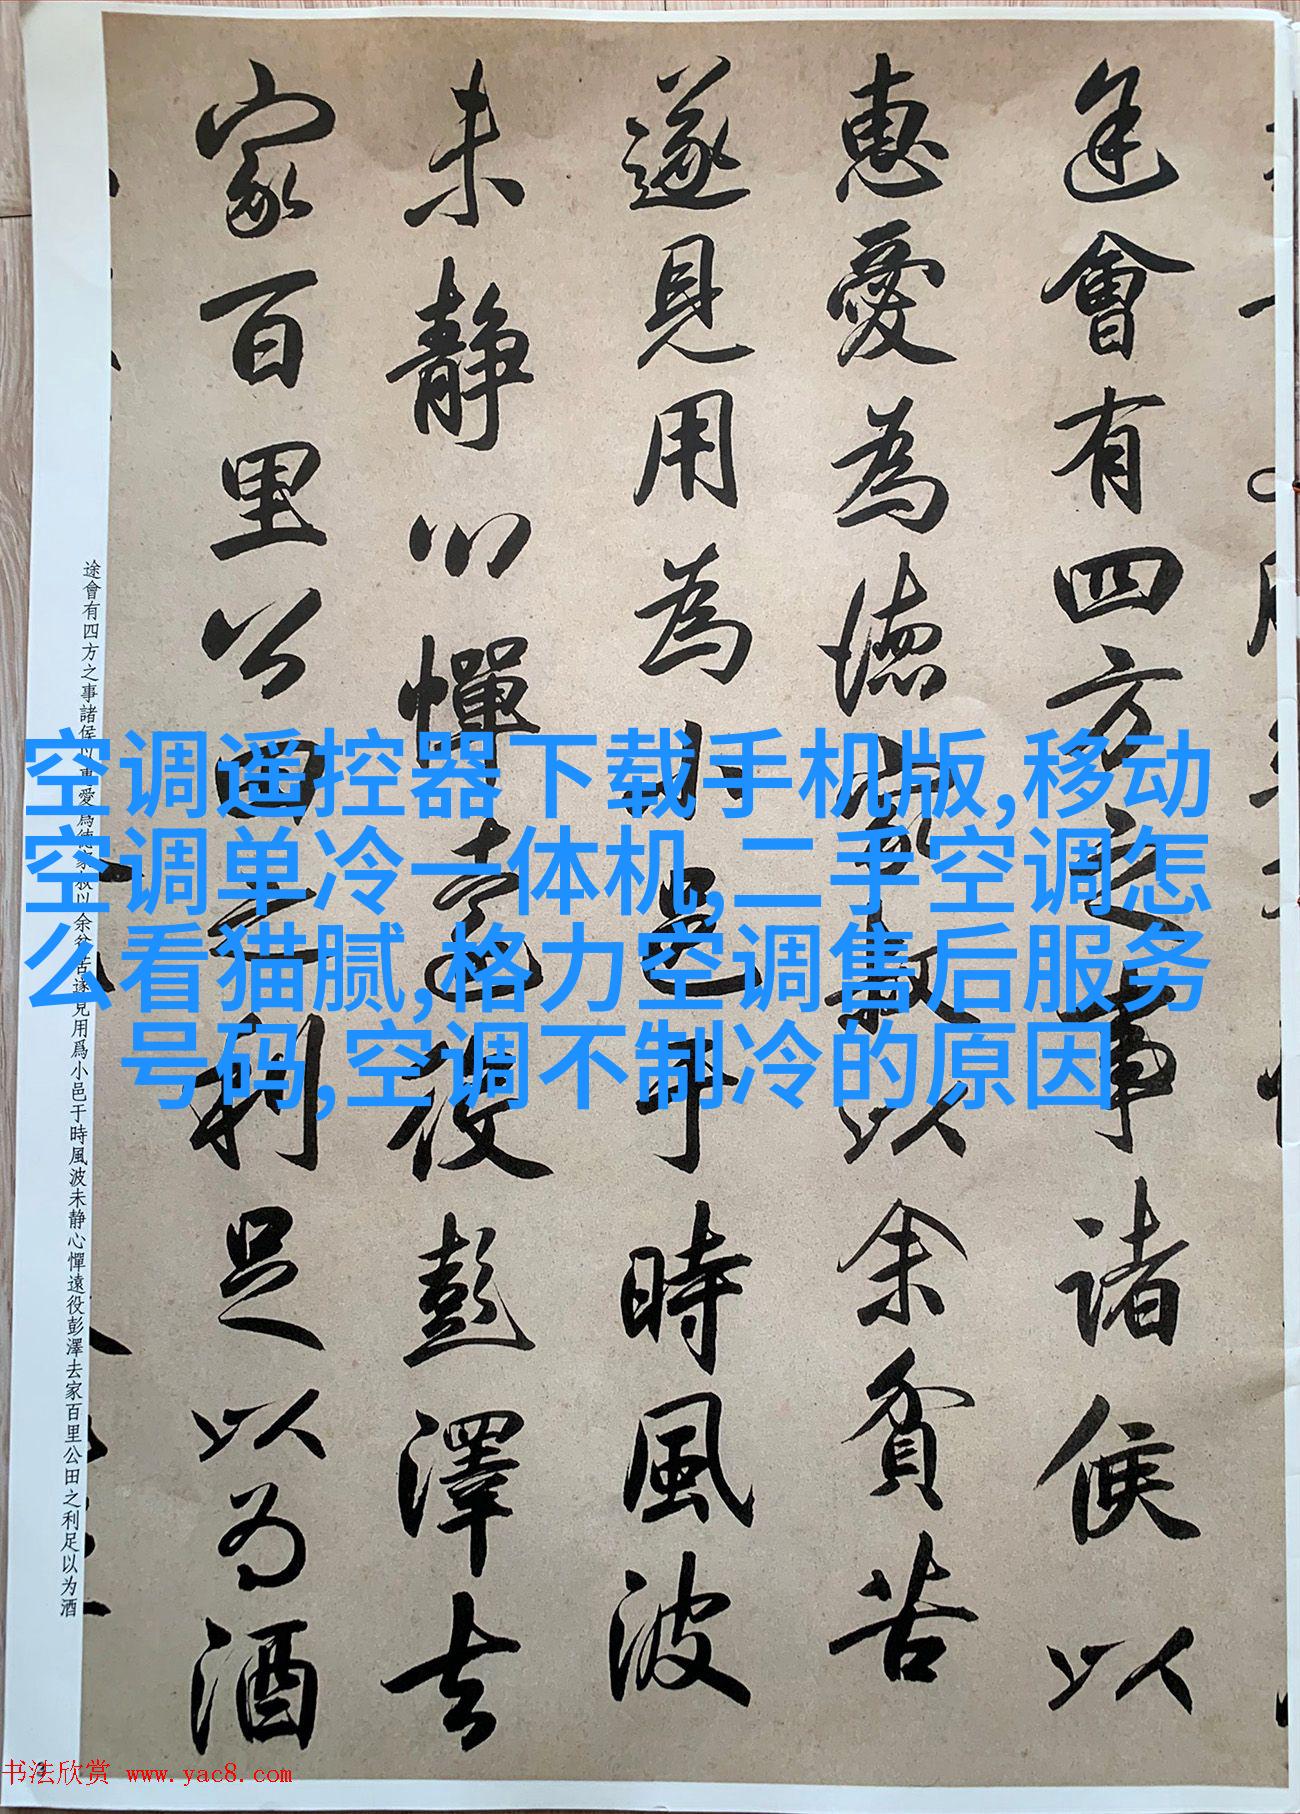 途會有四方之事諸侯以
惠愛為德家叔以余貧苦
遂見用為小邑于時風波
未静心憚遠役彭澤去
家百里公田之利足以为酒
途會有四方之事諸侯以惠愛爲德家叔以余貧苦遂見用爲小邑于時風波未静心憚遠役彭澤去家百里公田之利足以为酒
空调遥控器下载手机版,移动
空调单冷一体机,二手空调怎
么看猫腻,格力空调售后服务
号码,空调不制冷的原因
书法欣赏 www.yac8.com